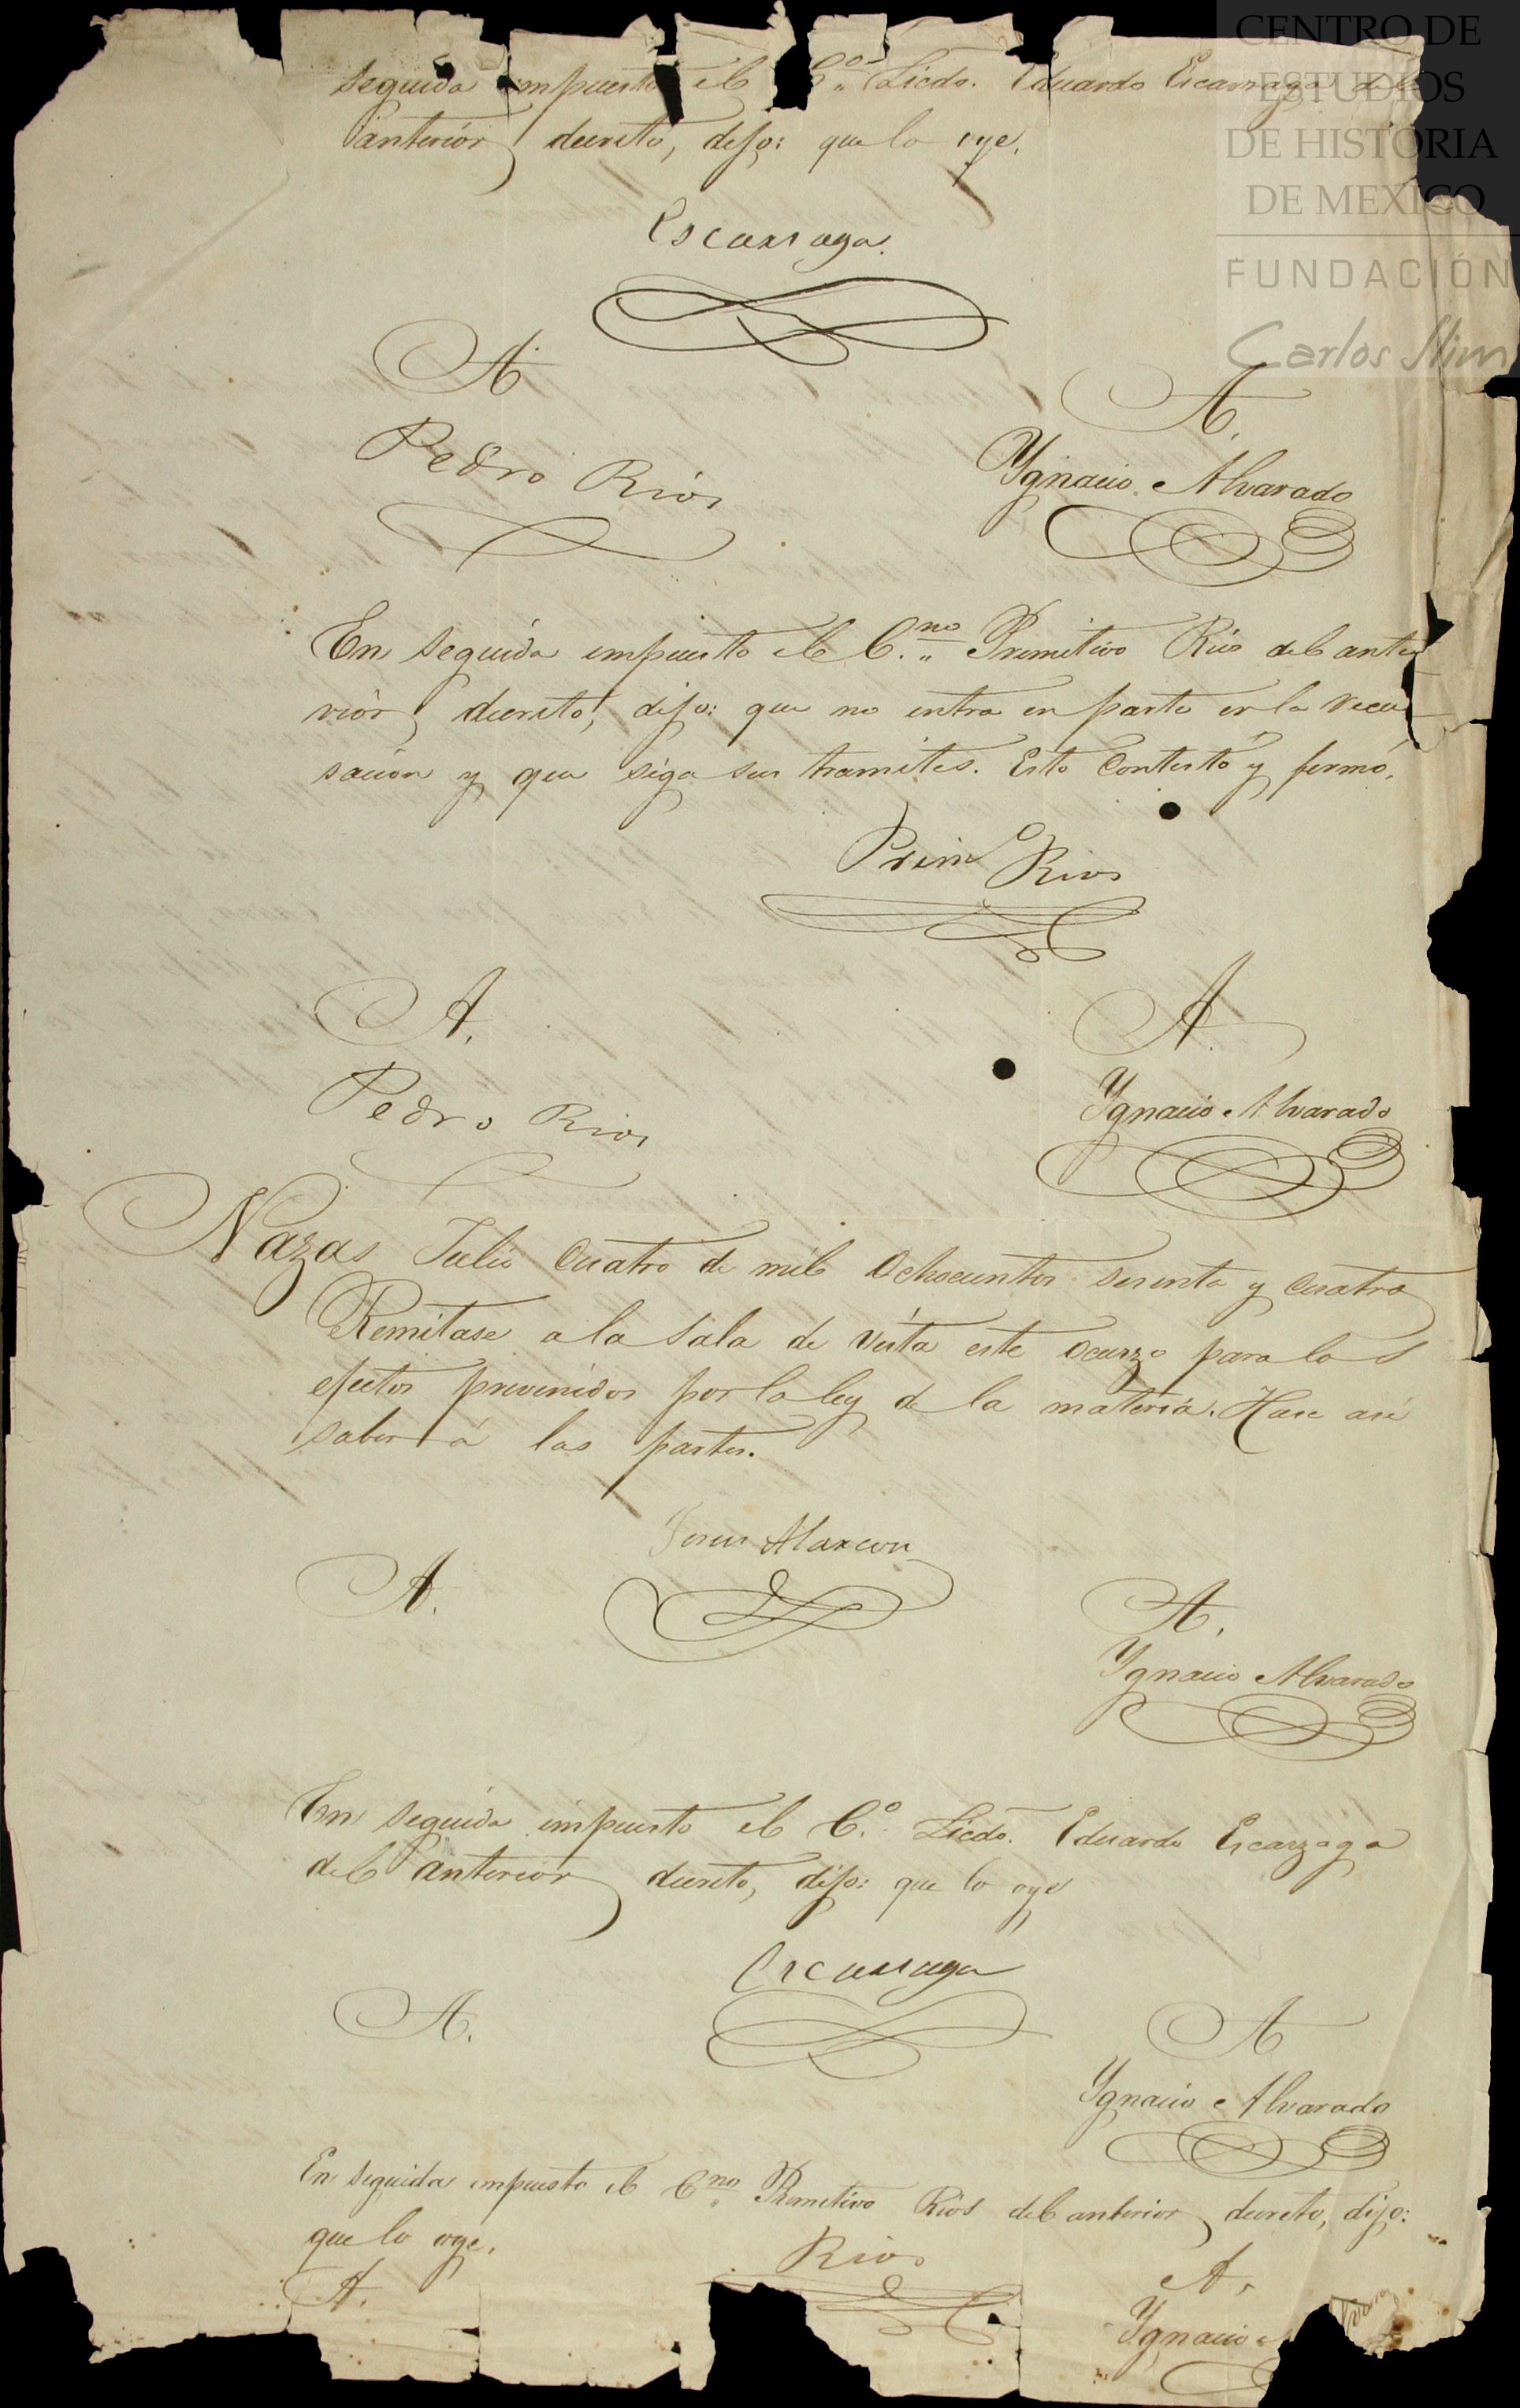 CENTRO DE
ESTUDIOS
DE HISTORIA
DE MEXICO
FUNDACIÓN
Carlos Slim
seguida impuesto el C.º Licdo. Eduardo Escarzaga del
anterior decreto, dijo: que lo oye.
Escarzaga.
A
A.
Pedro Rios
Ygnacio Alvarado
En seguida impuesto el C.no Primitivo Rios del ante
rior decreto, dijo: que no entra en parte en la recu
sacion y que siga sus tramites. Esto contestó y firmó.
Prim Rios
A.
A
Pedro Rios
Ygnacio Alvarado
Nazas Julio cuatro de mil ochocientos sesenta y cuatro
Remitase a la Sala de vista este ocurzo para los
efectos prevenidos por la ley de la materia. Hase asi
saber á las partes.
Jesus Alarcon
A.
A.
Ygnacio Alvarado
En seguida impuesto el C.º Licdo. Eduardo Escarzaga
del anterior decreto, dijo: que lo oye
Escarzaga
A.
A
Ygnacio Alvarado
En seguida impuesto el C.no Primitivo Rios del anterior decreto, dijo:
que lo oye.
Rios
A.
A.
Ygnacio